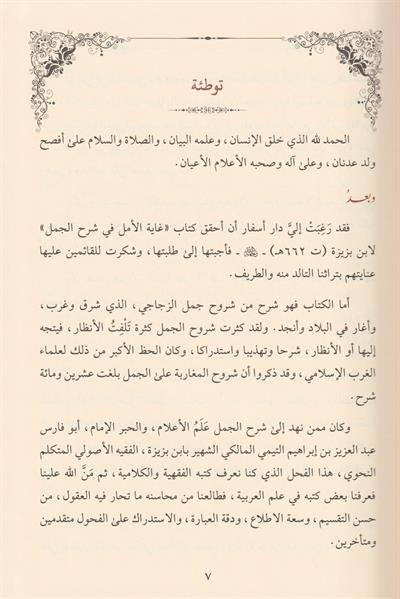 توطئة
الحمد لله الذي خلق الإنسان، وعلمه البيان، والصلاة والسلام علىٰ أفصح
ولد عدنان، وعلىٰ آله وصحبه الأعلام الأعيان.
وبعدُ
فقد رَغِبَتْ إليَّ دار أسفار أن أحقق كتاب «غاية الأمل في شرح الجمل»
لابن بزيزة (ت ٦٦٢هـ) ـ ﵀ ـ فأجبتها إلىٰ طلبتها، وشكرت للقائمين عليها
عنايتهم بتراثنا التالد منه والطريف.
أما الكتاب فهو شرح من شروح جمل الزجاجي، الذي شرق وغرب،
وأغار في البلاد وأنجد. ولقد كثرت شروح الجمل كثرة تَلْفِتُ الأنظار، فيتجه
إليها أو الأنظار، شرحا وتهذيبا واستدراكا، وكان الحظ الأكبر من ذلك لعلماء
الغرب الإسلامي، وقد ذكروا أن شروح المغاربة علىٰ الجمل بلغت عشرين ومائة
شرح.
وكان ممن نهد إلىٰ شرح الجمل عَلَمُ الأعلام، والحبر الإمام، أبو فارس
عبد العزيز بن إبراهيم التيمي المالكي الشهير بابن بزيزة، الفقيه الأصولي المتكلم
النحوي، هذا الفحل الذي كنا نعرف كتبه الفقهية والكلامية، ثم مَنَّ الله علينا
فعرفنا بعض كتبه في علم العربية، فطالعنا من محاسنه ما تحار فيه العقول، من
حسن التقسيم، وسعة الاطلاع، ودقة العبارة، والاستدراك علىٰ الفحول متقدمين
ومتأخرين.
٧